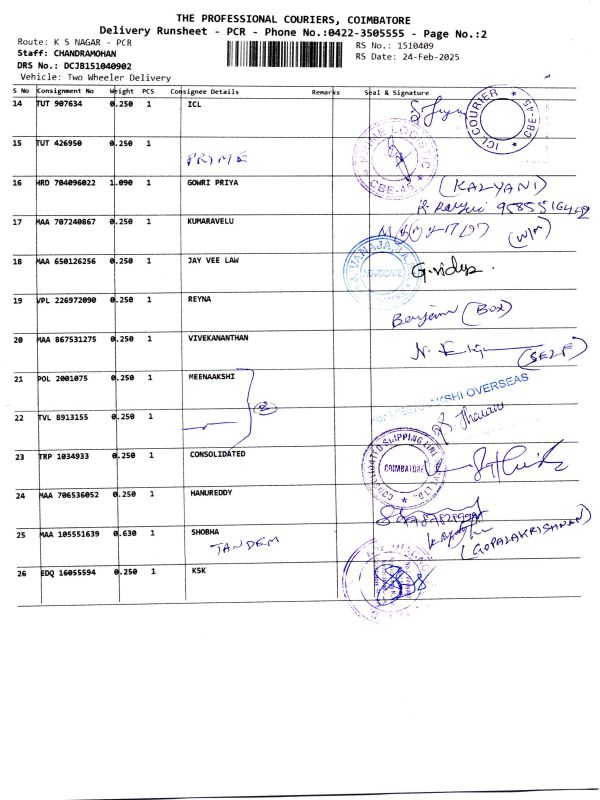 THE PROFESSIONAL COURIERS, COIMBATORE
Delivery Runsheet - PCR - Phone No.:0422-3505555 - Page No.:2
Route: K S NAGAR - PCR
RS No.: 1510409
Staff: CHANDRAMOHAN
RS Date: 24-Feb-2025
DRS No.: DCJB151040902
Vehicle: Two Wheeler Delivery
S No Consignment No Weight PCS Consignee Details Remarks Seal & Signature
14 TUT 907634 0.250 1 ICL
ICL COURIER * CBE-45 *
15 TUT 426950 0.250 1
PRIME
PRIME LOGISTIC * CBE-45 *
16 HRD 704096022 1.090 1 GOWRI PRIYA (KALYANI)
17 MAA 707240867 0.250 1 KUMARAVELU
(W/M)
18 MAA 650126256 0.250 1 JAY VEE LAW G.vidya.
VANAJA ADVOCATE
19 VPL 226972090 0.250 1 REYNA
(BOX)
20 MAA 867531275 0.250 1 VIVEKANANTHAN
(SELF)
21 POL 2001075 0.250 1 MEENAAKSHI
OVERSEAS
22 TVL 8913155 0.250 1
2
23 TRP 1034933 0.250 1 CONSOLIDATED
CONSOLIDATED SHIPPING LINE LTD. COIMBATORE
24 MAA 706536052 0.250 1 HANUREDDY
25 MAA 105551639 0.630 1 SHOBHA
TANDEM
(GOPALAKRISHNAN)
26 EDQ 16055594 0.250 1 KSK